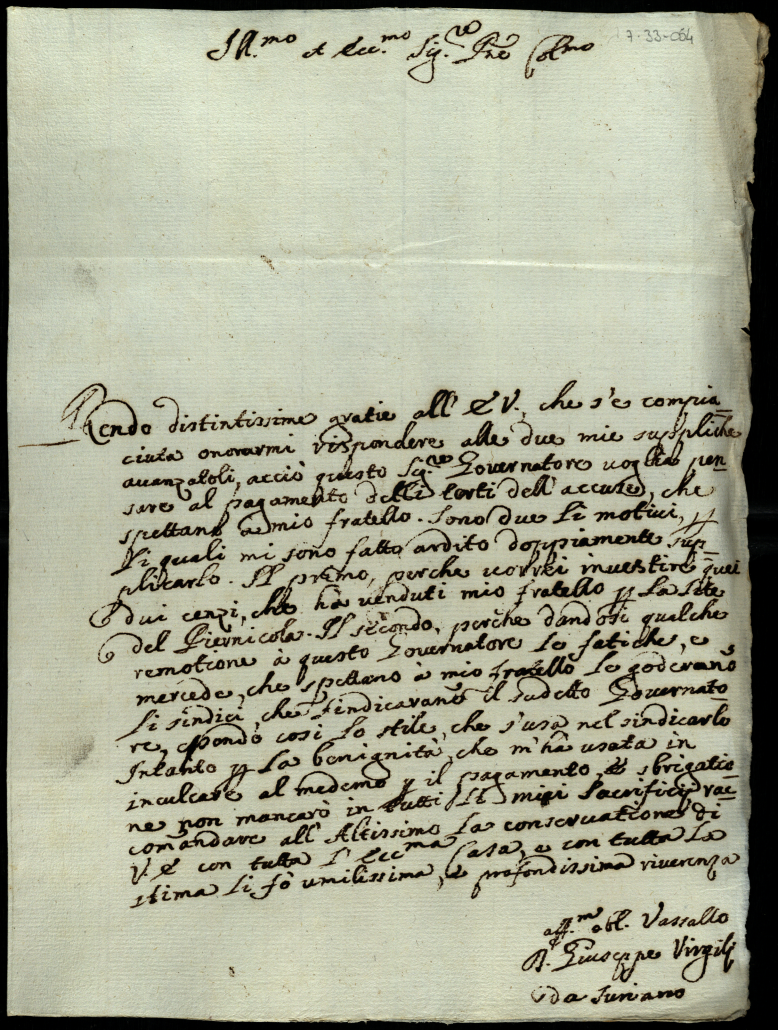 7-33-064
Ill.mo et Ecc.mo Sig.re Pne Colmo
Rendo distintissime gratie all' E V., che s'e compia=
ciuta onorarmi rispondere alle due mie suppliche
avanzatoli, acciò questo Sig.re Governatore voglia pen=
sare al pagamento delli terti dell'accuse, che
spettano a mio fratello. Sono due li motivi, p
li quali mi sono fatto ardito doppiamente sup=
plicarlo. Il primo, perche vorrei investire quei
dui cenzi, che hà venduti mio fratello p la lite
del Piernicola. Il secondo, perche dandosi qualche
remotione à questo Governatore le fatiche, e
mercede, che spettano à mio fratello le goderanò
li sindici, che sindicaranò il sudetto Governato
re, essendo cosi lo stile, che s'usa nel sindicarlo
Intanto p la benignità, che m'hà usata in
inculcare al medemo p il pagamento, e sbrigatio=
ne non mancarò in tutti li miei Sacrificij rac=
comandare all'Altissimo la conservatione di
V. E con tutta l'Eccma Casa, e con tutta la
stima li fò umilissima, e profondissima riverenza
aff.mo obl. Vassallo
D. Giuseppe Virgilj
da Suriano